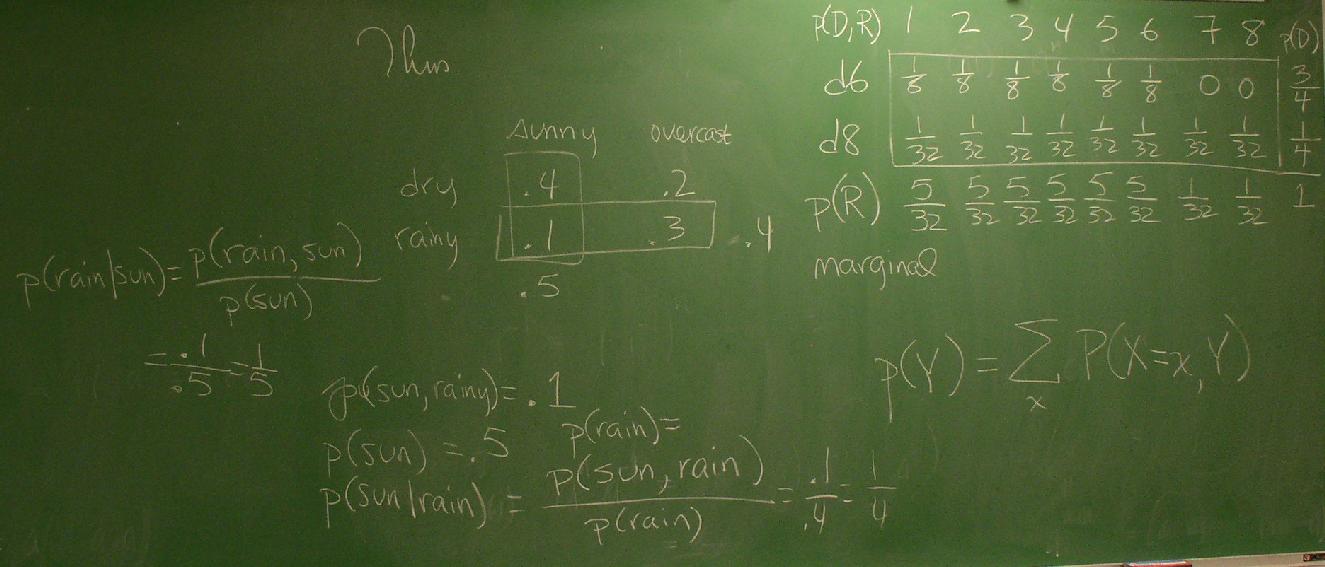 Thus
sunny overcast
dry .4 .2
rainy .1 .3 .4
.5
p(rain|sun) = p(rain, sun)
p(sun)
= .1/.5 = 1/5
p(sun, rainy) = .1
p(sun) = .5 p(rain) =
p(sun|rain) = p(sun, rain) = .1/.4 = 1/4
p(rain)
p(D,R) 1 2 3 4 5 6 7 8 p(D)
d6 1/8 1/8 1/8 1/8 1/8 1/8 0 0 3/4
d8 1/32 1/32 1/32 1/32 1/32 1/32 1/32 1/32 1/4
p(R) 5/32 5/32 5/32 5/32 5/32 5/32 1/32 1/32 1
marginal
p(Y) = Σ P(X=x, Y)
x